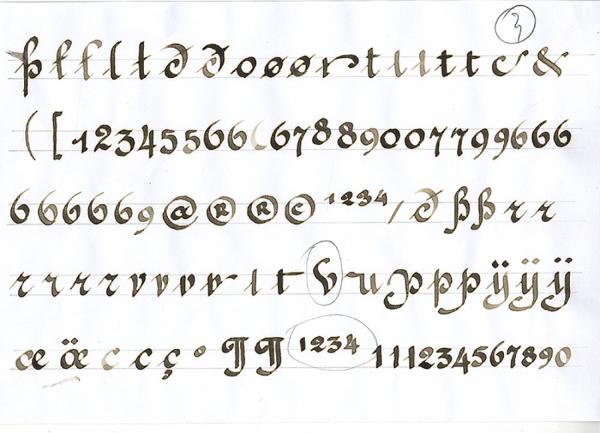 3
þ f f l ł ð ð o ø ø r t l u t t c &
( [ 1 2 3 4 5 5 6 6 ( 6 7 8 8 9 0 0 7 7 9 9 6 6 6
6 6 6 6 6 9 @ ® ® © 1 2 3 4 / ð þ þ r r
r r r r r v v v v r l t v u p p þ ÿ ÿ ÿ
œ œ c c ç ° ¶ ¶ 1 2 3 4 1 1 1 2 3 4 5 6 7 8 9 0